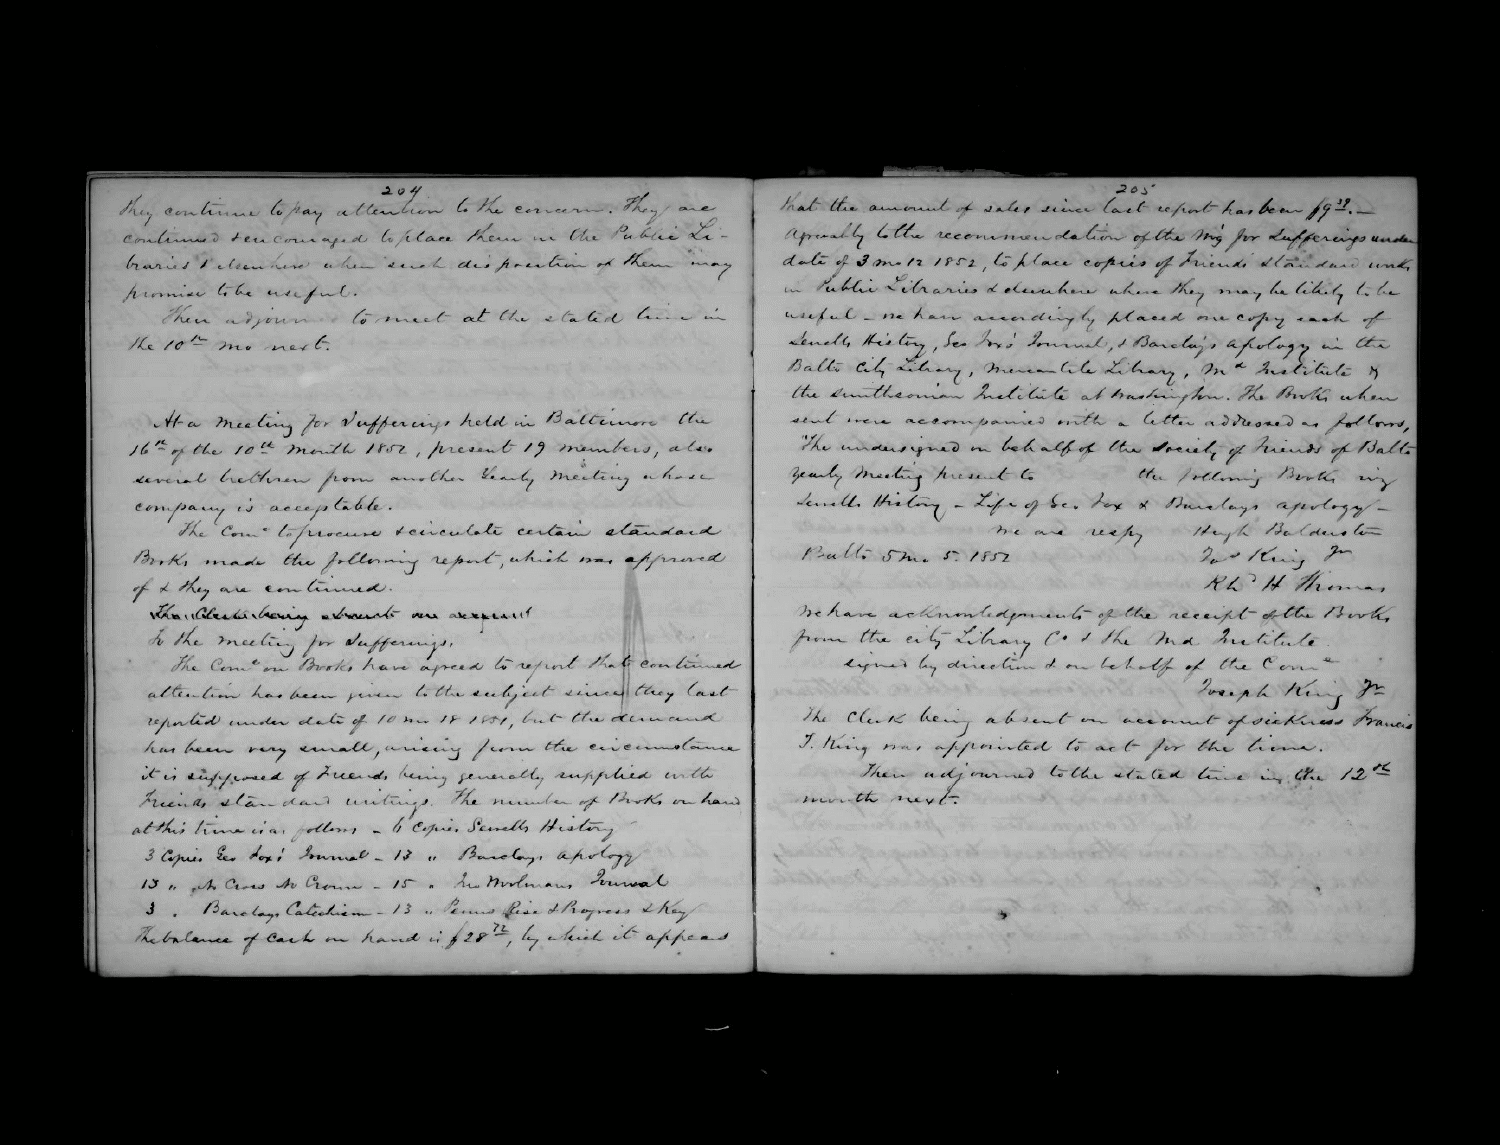 204
they continue to pay attention to the concern. They are
continued & encouraged to place them in the Public Li-
braries & elsewhere when such disposition of them may
promise to be useful.
Then adjourn to meet at the stated time in
the 10th mo next.
At a Meeting for Sufferings held in Baltimore the
16th of the 10th Month 1852, present 19 members, also
several brethren from another Yearly Meeting whose
company is acceptable.
The Come to procure & circulate certain standard
Books made the following report, which was approved
of & they are continued.
The Clerk being absent on account
To the Meeting for Sufferings.
The Come on Books have agreed to report that continued
attention has been given to the subject since they last
reported under date of 10 mo 18 1851, but the demand
has been very small, arising from the circumstance
it is supposed of Friends being generally supplied with
Friends standard writings. The number of Books on hand
at this time is as follows – 6 Copies Sewells History
3 Copies Geo Fox's Journal – 13 " Barclays Apology
13 " No Cross No Crown – 15 " Jno Woolmans Journal
3 " Barclays Catechism – 13 " Penns Rise & Progress & Key
The balance of Cash on hand is $28 72, by which it appears
205
that the amount of sales since last report has been $9 38. –
Agreeably to the recommendation of the Mg for Sufferings under
date of 3 mo 12 1852, to place copies of Friends standard works
in Public Libraries & elsewhere where they may be likely to be
useful – we have accordingly placed one copy each of
Sewells History, Geo Fox's Journal, & Barclay's Apology in the
Balto City Library, Mercantile Library, Md Institute &
the Smithsonian Institute at Washington. The Books when
sent were accompanied with a letter addressed as follows,
"The undersigned on behalf of the Society of Friends of Balto
Yearly Meeting present to the following Books viz
Sewells History – Life of Geo Fox & Barclays Apology –
We are respy Hugh Balderston
Balto 5 Mo 5. 1852 Jos King Jr
Richd H Thomas
We have acknowledgments of the receipt of the Books
from the City Library Co & the Md Institute.
signed by direction & on behalf of the Come
Joseph King Jr
The Clerk being absent on account of sickness Francis
T. King was appointed to act for the time.
Then adjourned to the stated time in the 12th
month next.